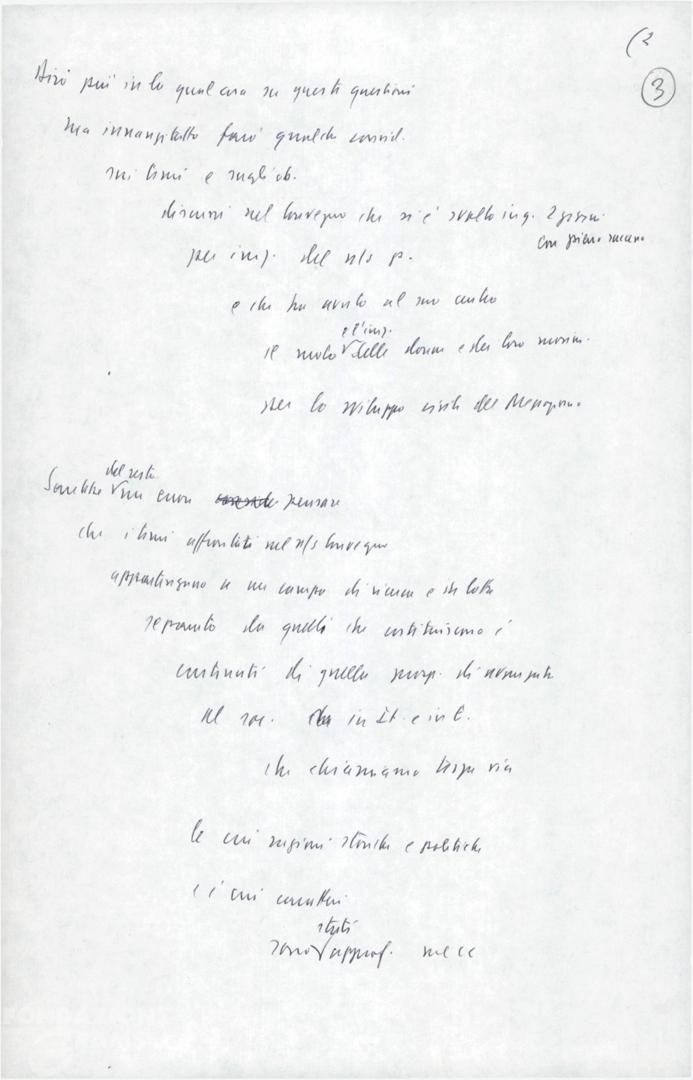 (2
3
Dirò più in là qualcosa su questi questioni
ma innanzitutto farò qualche consid.
sui temi e sugli ob.
discussi nel convegno che si è svolto in q. 2 giorni
con pieno successo
per in. del n/s p.
e che ha avuto al suo centro
e l'imp.
il ruolo √ delle donne e dei loro movim.
per lo sviluppo civile del Mezzogiorno
del resto
Sarebbe √ un errore pensare
che i temi affrontati nel n/s convegno
appartengano a un campo di ricerca e di lotta
separato da quelli che costituiscono i
contenuti di quella prosp. di avanzata
al soc. in It. e in E.
che chiamiamo terza via
le cui ragioni storiche e politiche
e i cui caratteri
stati
sono √ approf. nel CC